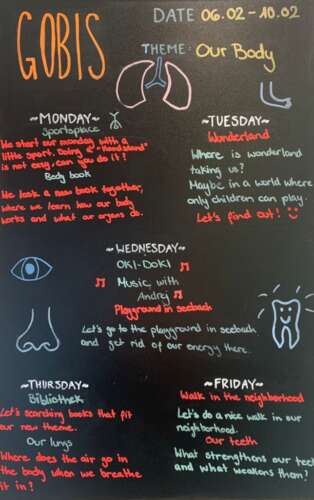 GOBIS
DATE 06.02 - 10.02
THEME: Our Body
~MONDAY~
Sportsplace
We start our monday with a
little sport. Doing a "Handstand"
is not easy, can you do it?
Body book
We took a new book together,
where we learn how our body
works and what our organs do.
~TUESDAY~
Wonderland
Where is wonderland
taking us?
Maybe in a world where
only children can play.
Let's find out!
~WEDNESDAY~
OKI-DOKI
Music with
Andrej
Playground in seebach
Let's go to the playground in seebach
and get rid of our energy there.
~THURSDAY~
Bibliothek
Let's searching books that fit
our new theme.
Our lungs
Where does the air go in
the body when we breathe
it in?
~FRIDAY~
Walk in the neighborhood
Let's do a nice walk in our
neighborhood.
Our teeth
What strengthens our teeth
and what weakens them?